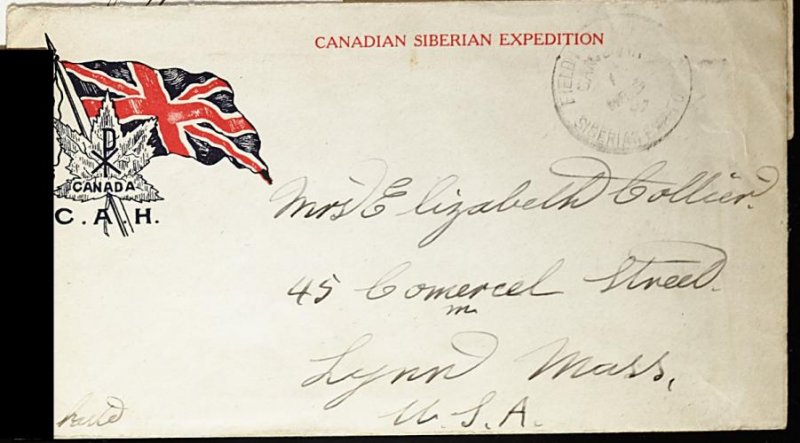 CANADIAN SIBERIAN EXPEDITION
FIELD
SIBERIAN
CANADA
C. A. H.
Mrs Elizabeth Collier.
45 Comercel Street.
m
Lynn Mass,
U.S.A.